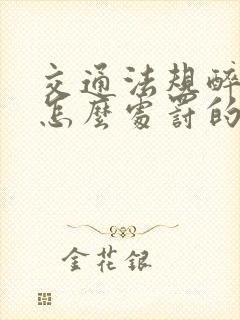 交通法規醉
怎麼處罰的
金花銀